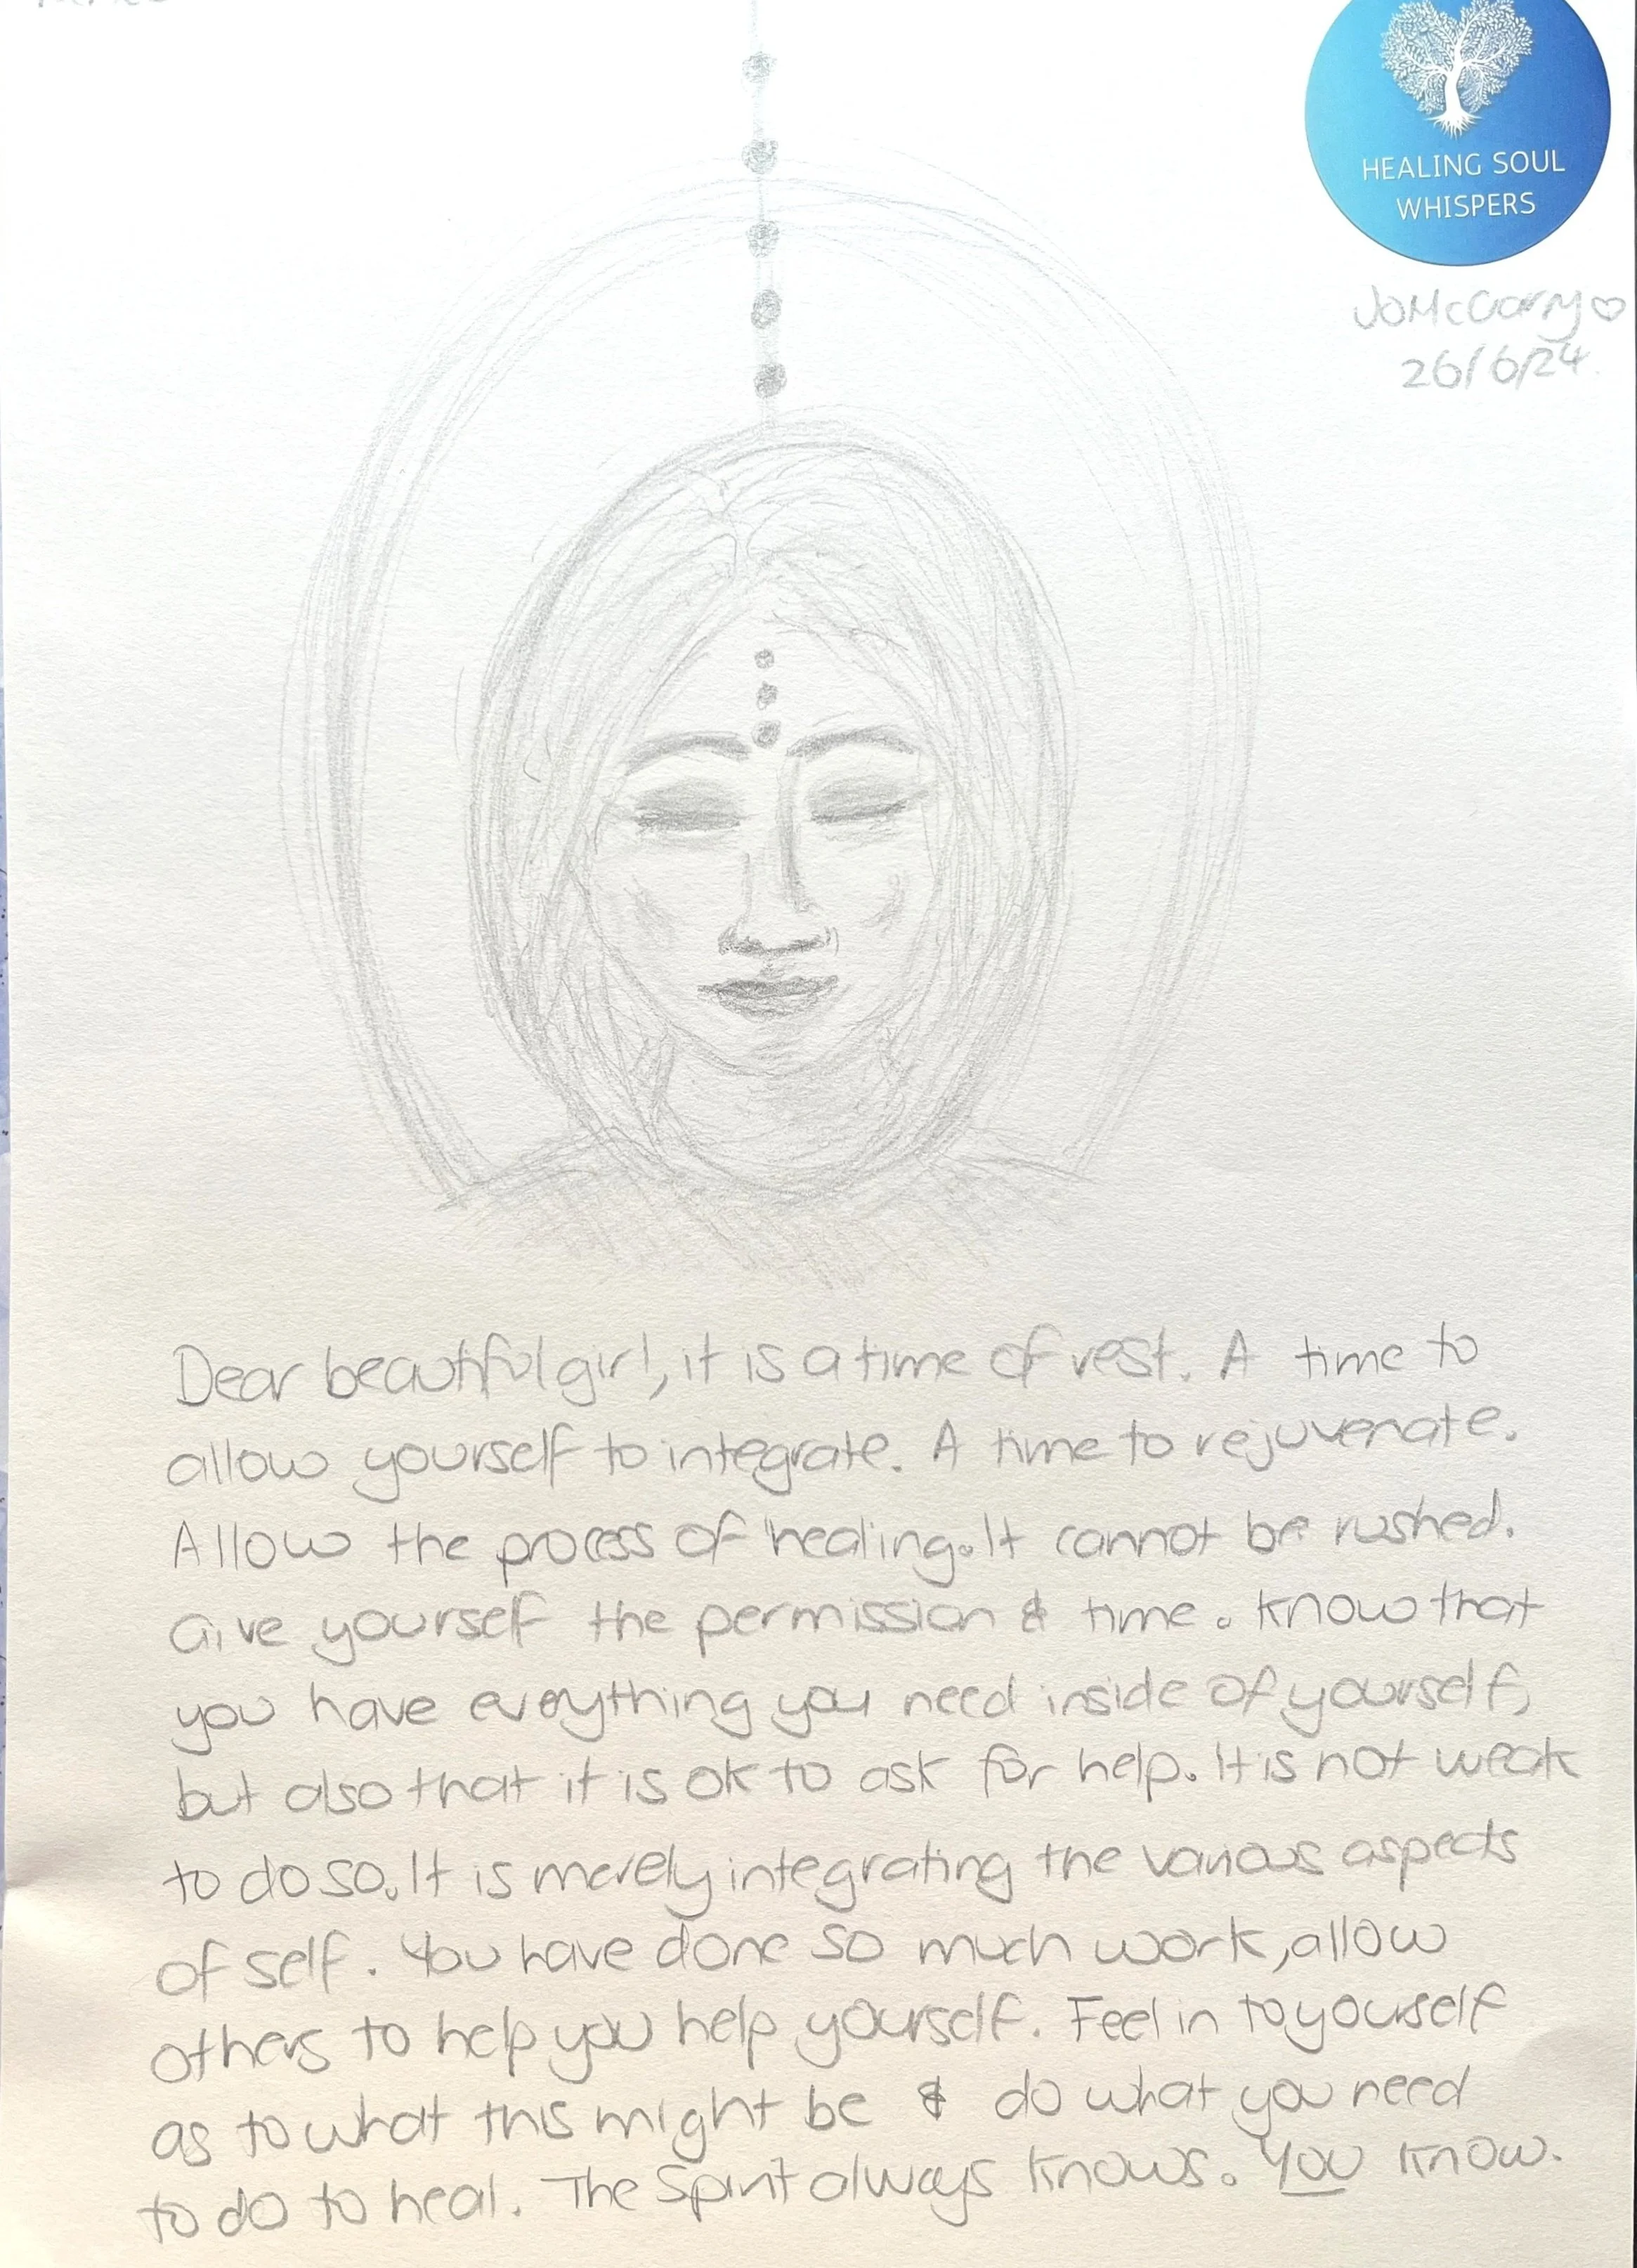 HEALING SOUL
WHISPERS
Jo McGarry
26/6/24.
Dear beautiful girl, it is a time of rest. A time to
allow yourself to integrate. A time to rejuvenate.
Allow the process of healing. It cannot be rushed.
Give yourself the permission & time. Know that
you have everything you need inside of yourself,
but also that it is ok to ask for help. It is not weak
to do so. It is merely integrating the various aspects
of self. You have done so much work, allow
others to help you help yourself. Feel in to yourself
as to what this might be & do what you need
to do to heal. The Spirit always knows. You know.